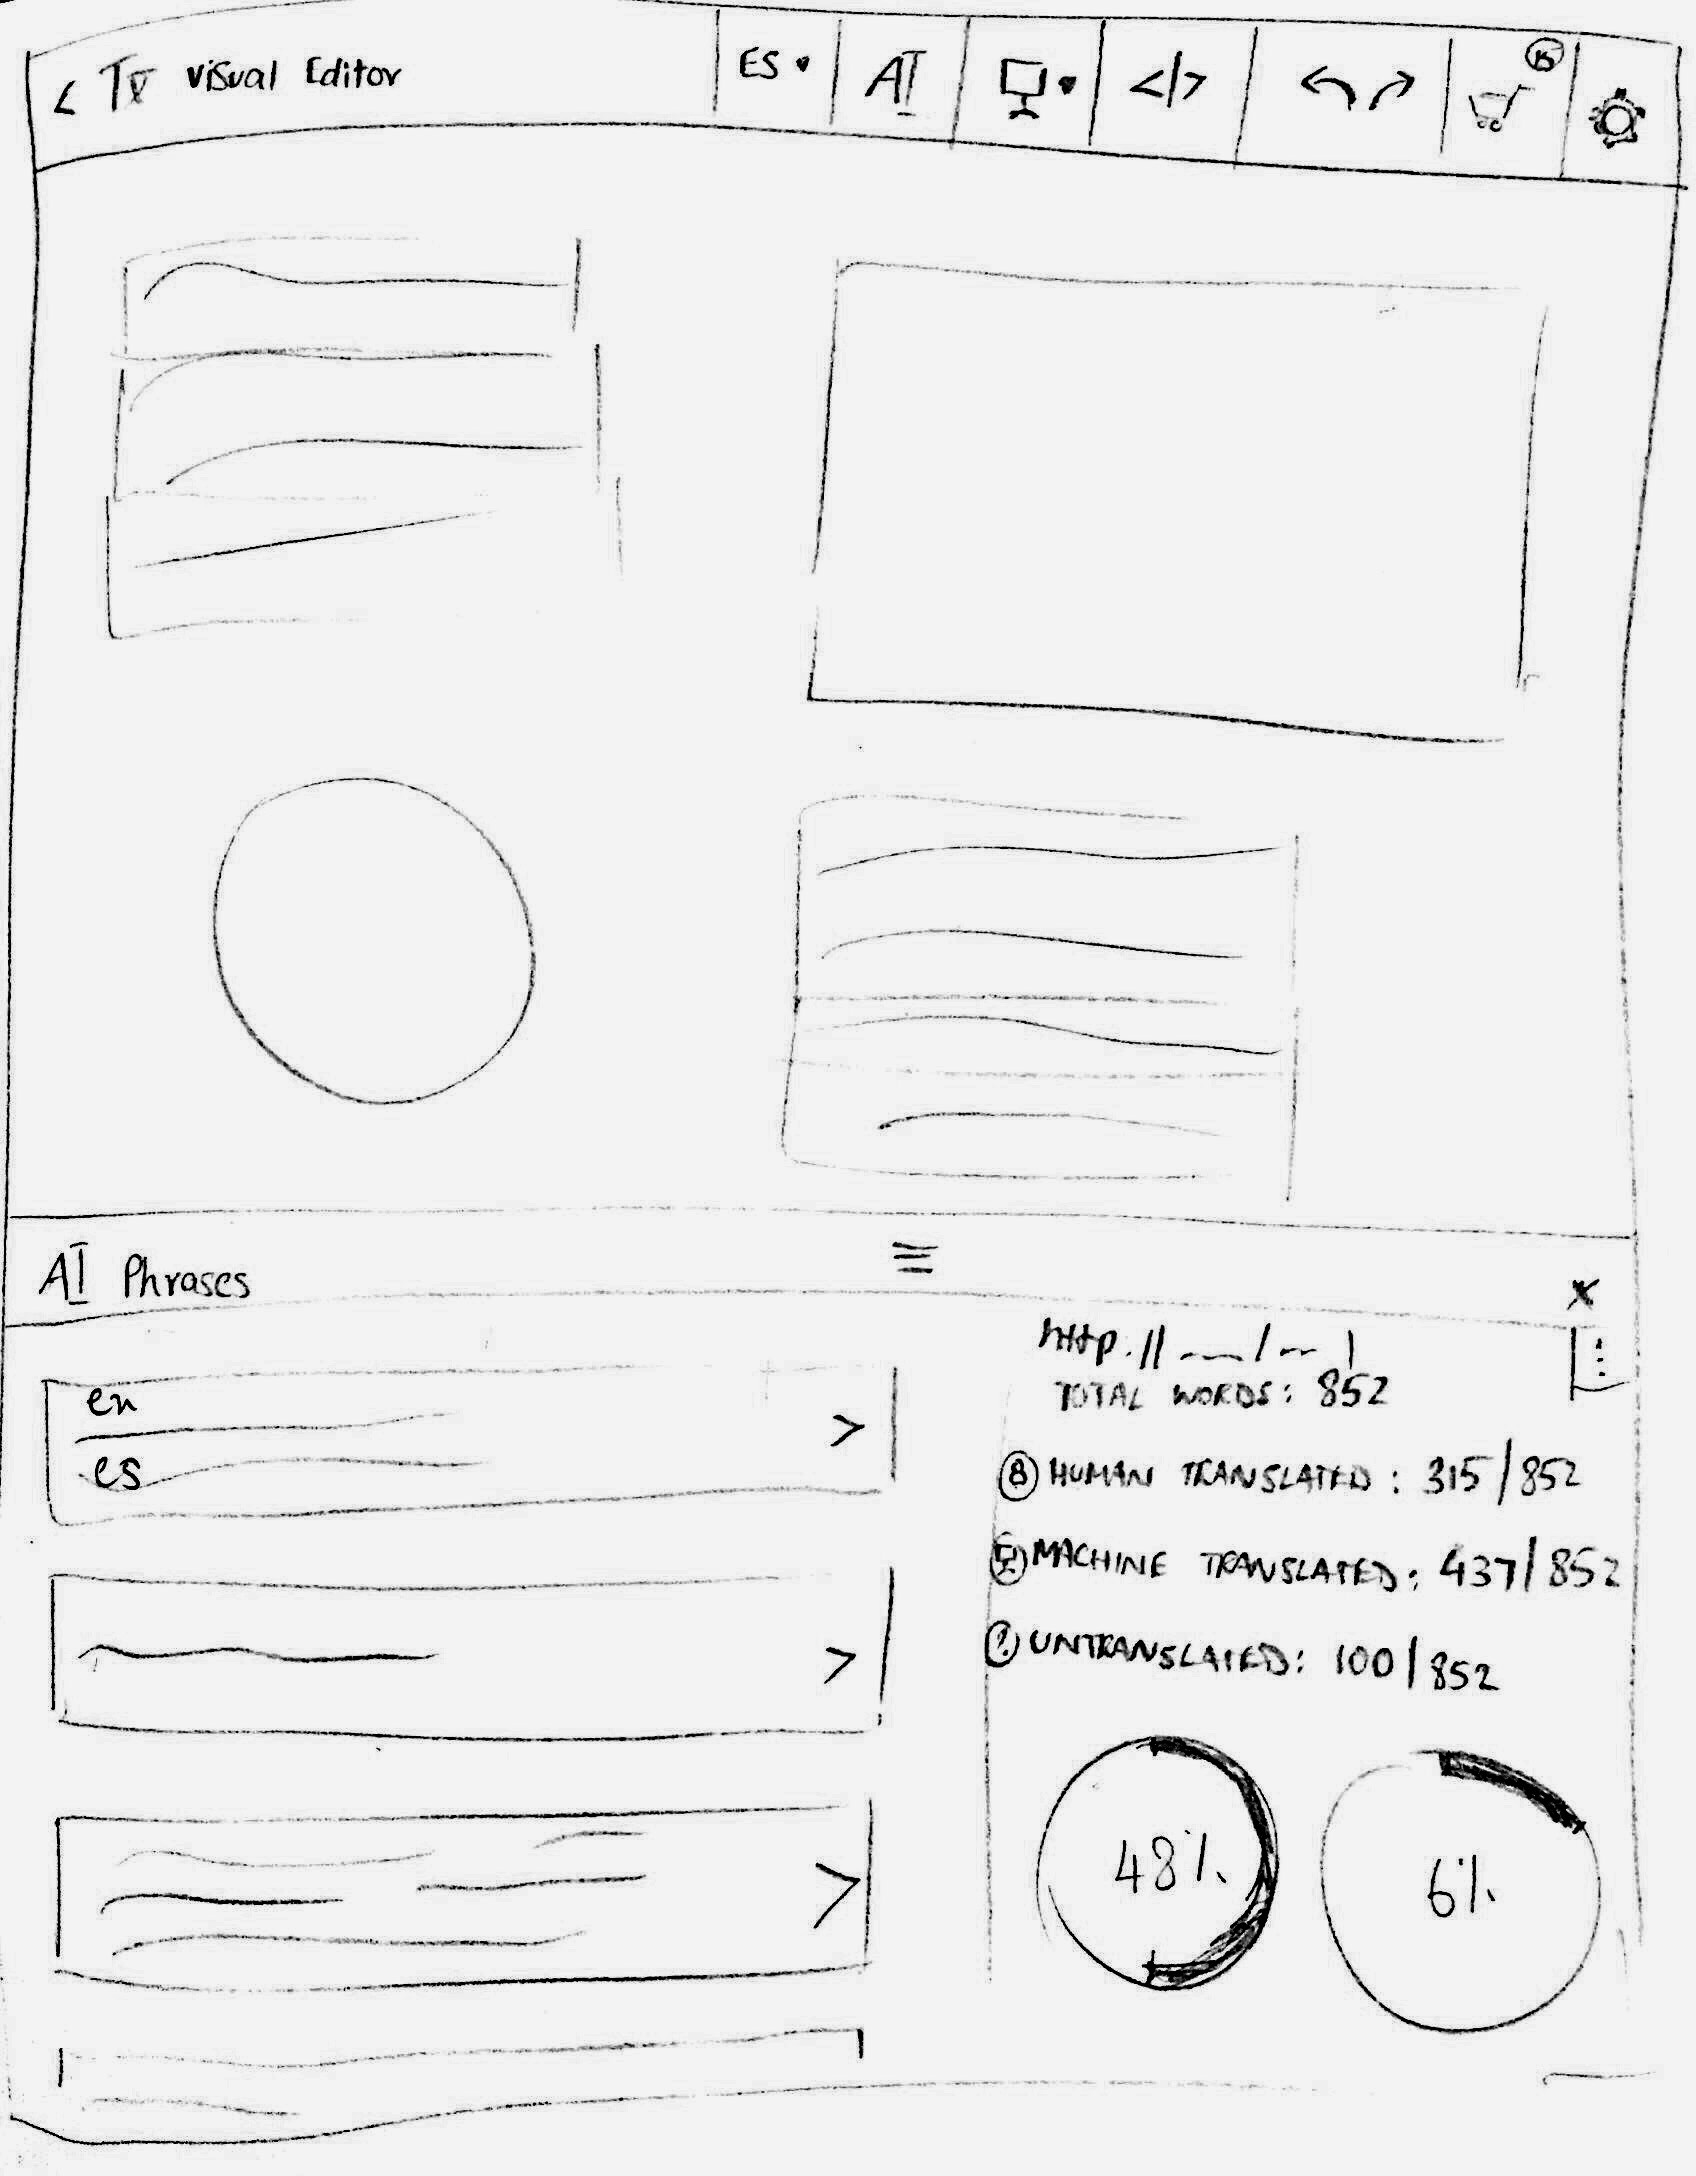 < Visual Editor
ES
AI
</>
15
AI Phrases
x
en
>
es
>
>
http://
TOTAL WORDS: 852
HUMAN TRANSLATED: 315/852
MACHINE TRANSLATED: 437/852
? UNTRANSLATED: 100/852
48%
6%